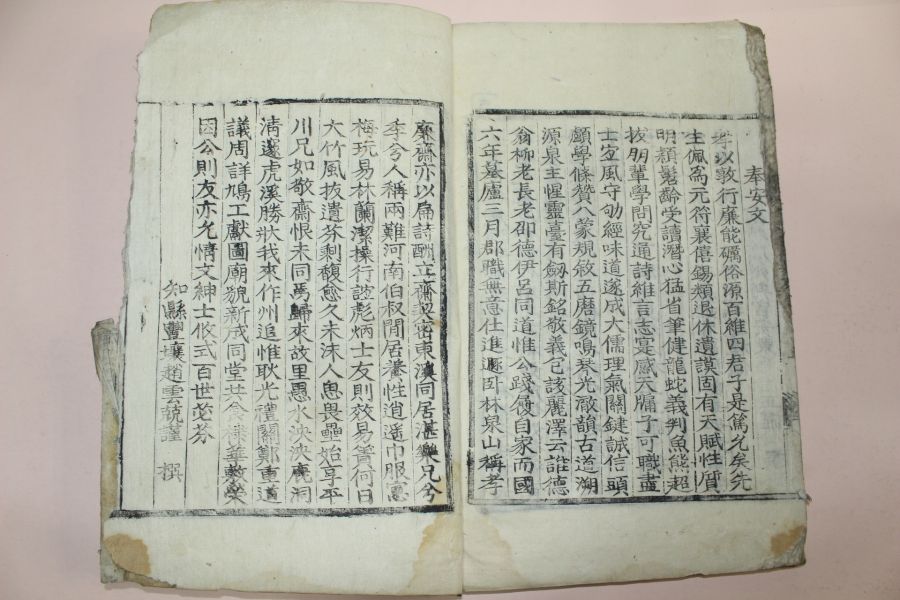 奉安文
孝以敦行廉能礪俗源百維四君子是篤允矣先
生佩爲元符襄僖錫類退休遺謨固有天賦性質
明穎髫齡受讀潛心猛省筆健龍蛇義判魚熊超
拔朋輩學問究通詩維言志寔感天牖子可職盡
士宜風守劬經味道遂成大儒理氣關鍵誠信頭
顱學條贊八蒙規敘五磨鏡鳴琹光澈韻古道溯
源泉主惺靈臺有劒斯銘敬義已該麗澤云誰德
翁柳老長老卲德伊呂同道惟公踐履自家而國
六年墓廬三月郡職無意仕進遯卧林泉山稱孝
廉齋亦以扁詩酬立齋契密東澳同居湛樂兄兮
季兮人稱兩難河南伯叔閒居養性逍遥巾服寓
梅玩易林蘭潔操行誼彪炳士友則效易簀何日
大竹風拔遺芬剩馥愈久未沬人思畏壘始享平
川兄如敬齋恨未同焉歸來故里愚水泱泱鹿洞
清邃虎溪勝狀我來作州追惟耿光禮關鄭重道
議周詳鳩工獻圖廟貌新成同堂共食棣華
因公則友亦允情文紳士攸式百世苾芬
知縣豐壤趙雲兢謹 撰